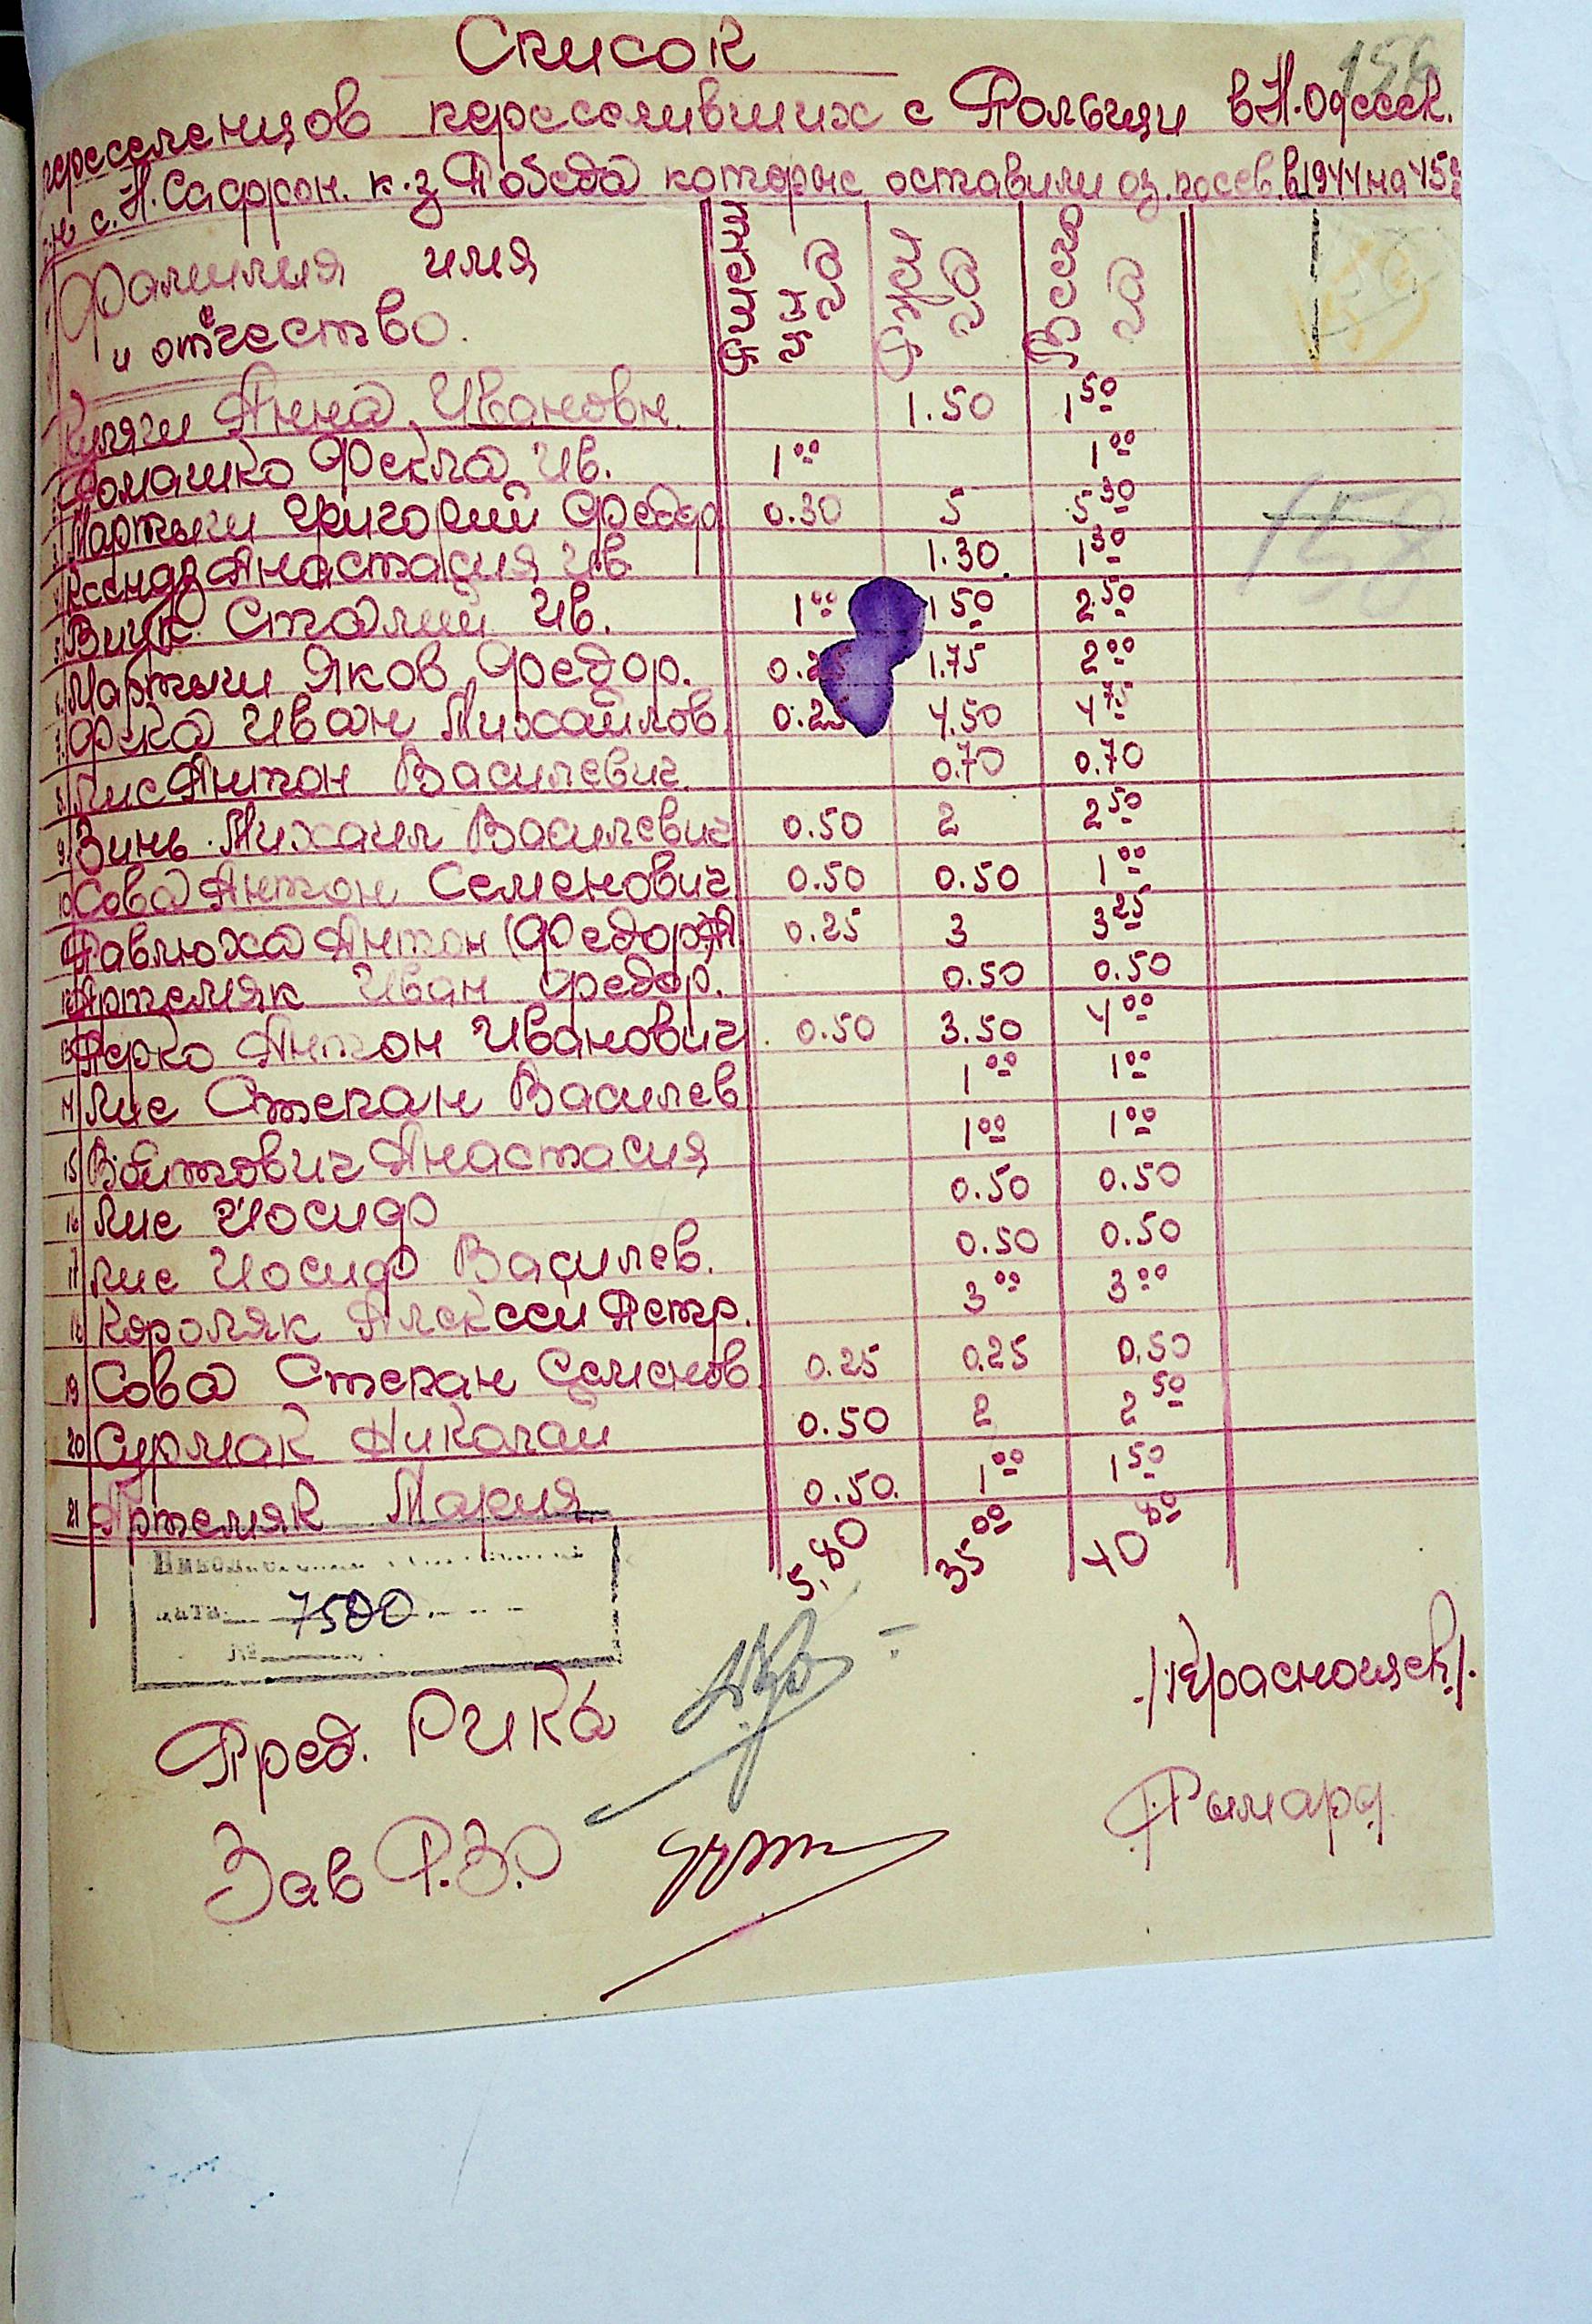 Список
156
переселенцов переселивших с Польщи в Н.Одесск.
с. Н. Сафрон. к-з Победа которые оставили оз. посев. в 1944 на 45г
Фамилия имя и отчество. Пшениц га Жита га Всего га
Анна Ивановн. 1.50 1 50
Ромашко Фекла Ив. 1 00 1 00
158
Мартыч Григорий Федор 0.30 5 5 30
Анастасия Ив 1.30. 1 30
5 Вицк Сталий Ив. 1 00 1 50 2.50
6 Мартыч Яков Федор. 1.75 2 00
7 Фека Иван Михайлов. 0.25 4.50 4 75
8 Лис Антон Василевич. 0.70 0.70
9 Зинь Михаил Василевич 0.50 2 2 50
10 Сова Антон Семенович 0.50 0.50 1 00
Павлюха Антон (Федор) 0.25 3 3 25
12 Артемяк Иван Федор. 0.50 0.50
13 Ферко Антон Иванович 0.50 3.50 4 00
14 Лис Степан Василев 1 00 1 00
15 Войтович Анастасия 1 00 1 00
16 Лис Иосиф 0.50 0.50
17 Лис Иосиф Василев. 0.50 0.50
18 Короляк Алексей Петр. 3 00 3 00
19 Сова Степан Семенов. 0.25 0.25 0.50
20 Сурмак Николай 0.50 2 2 50
21 Артемяк Мария 0.50. 1 00 1 50
5,80 35 00 40 80
7500
Пред. РИКа /Красношек/.
Зав Р.З.О